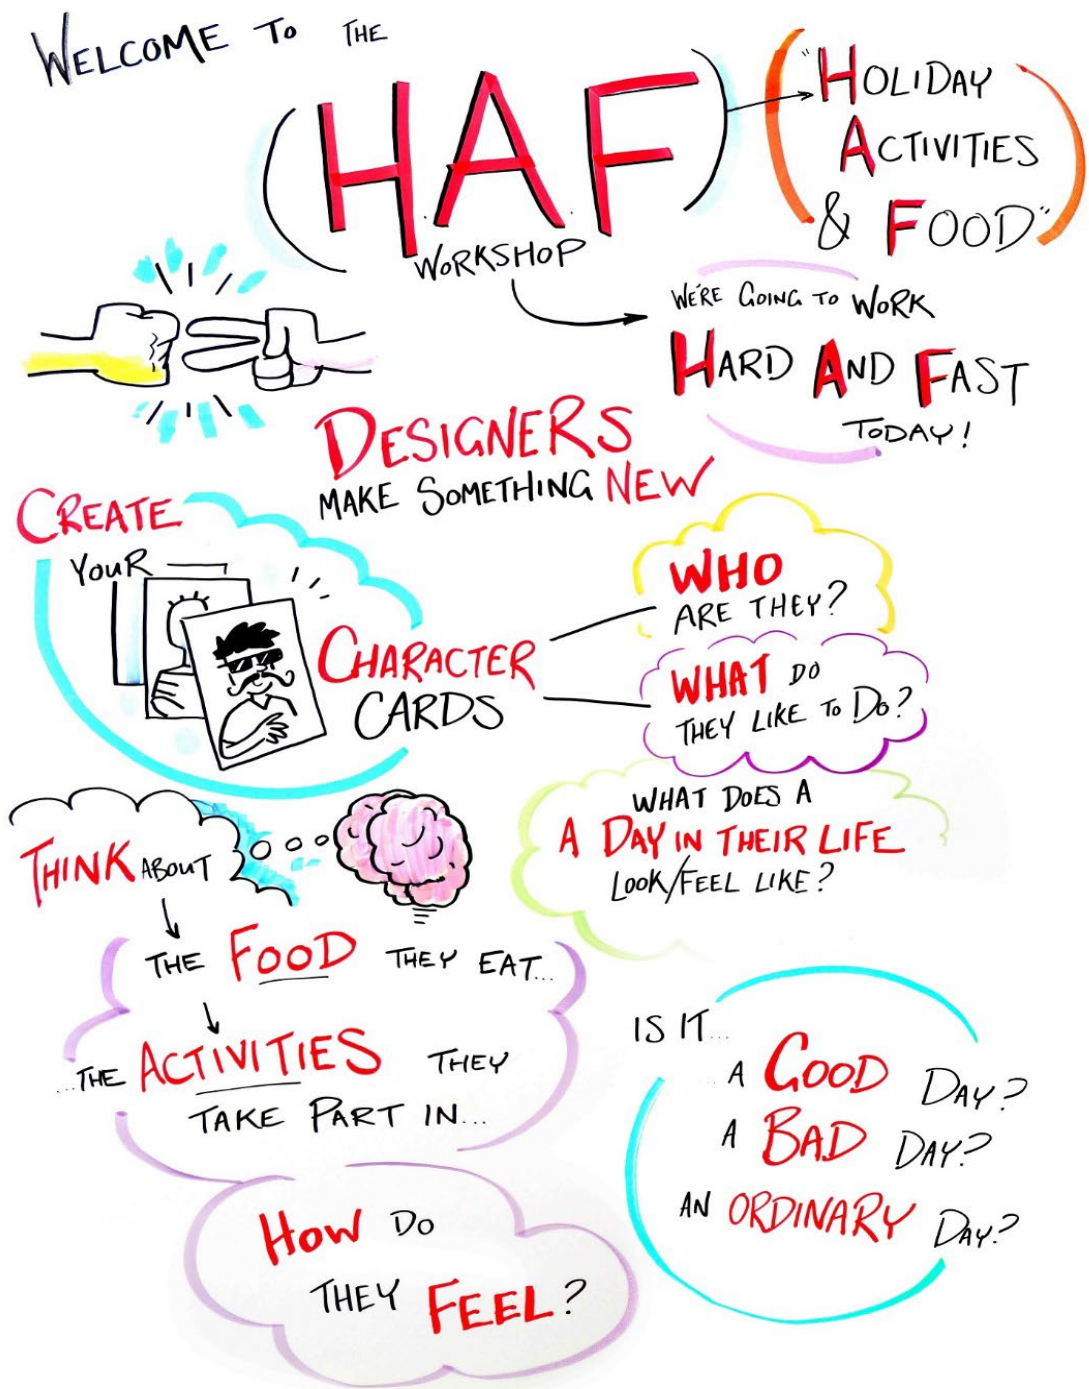 WELCOME TO THE
(HAF)
WORKSHOP
"HOLIDAY
ACTIVITIES
& FOOD"
WE'RE GOING TO WORK
HARD AND FAST
TODAY!
DESIGNERS
MAKE SOMETHING NEW
CREATE
YOUR
CHARACTER
CARDS
WHO
ARE THEY?
WHAT DO
THEY LIKE TO DO?
WHAT DOES A
A DAY IN THEIR LIFE
LOOK/FEEL LIKE?
THINK ABOUT
THE FOOD THEY EAT...
...THE ACTIVITIES THEY
TAKE PART IN...
HOW DO
THEY FEEL?
IS IT...
...A GOOD DAY?
A BAD DAY?
AN ORDINARY DAY?